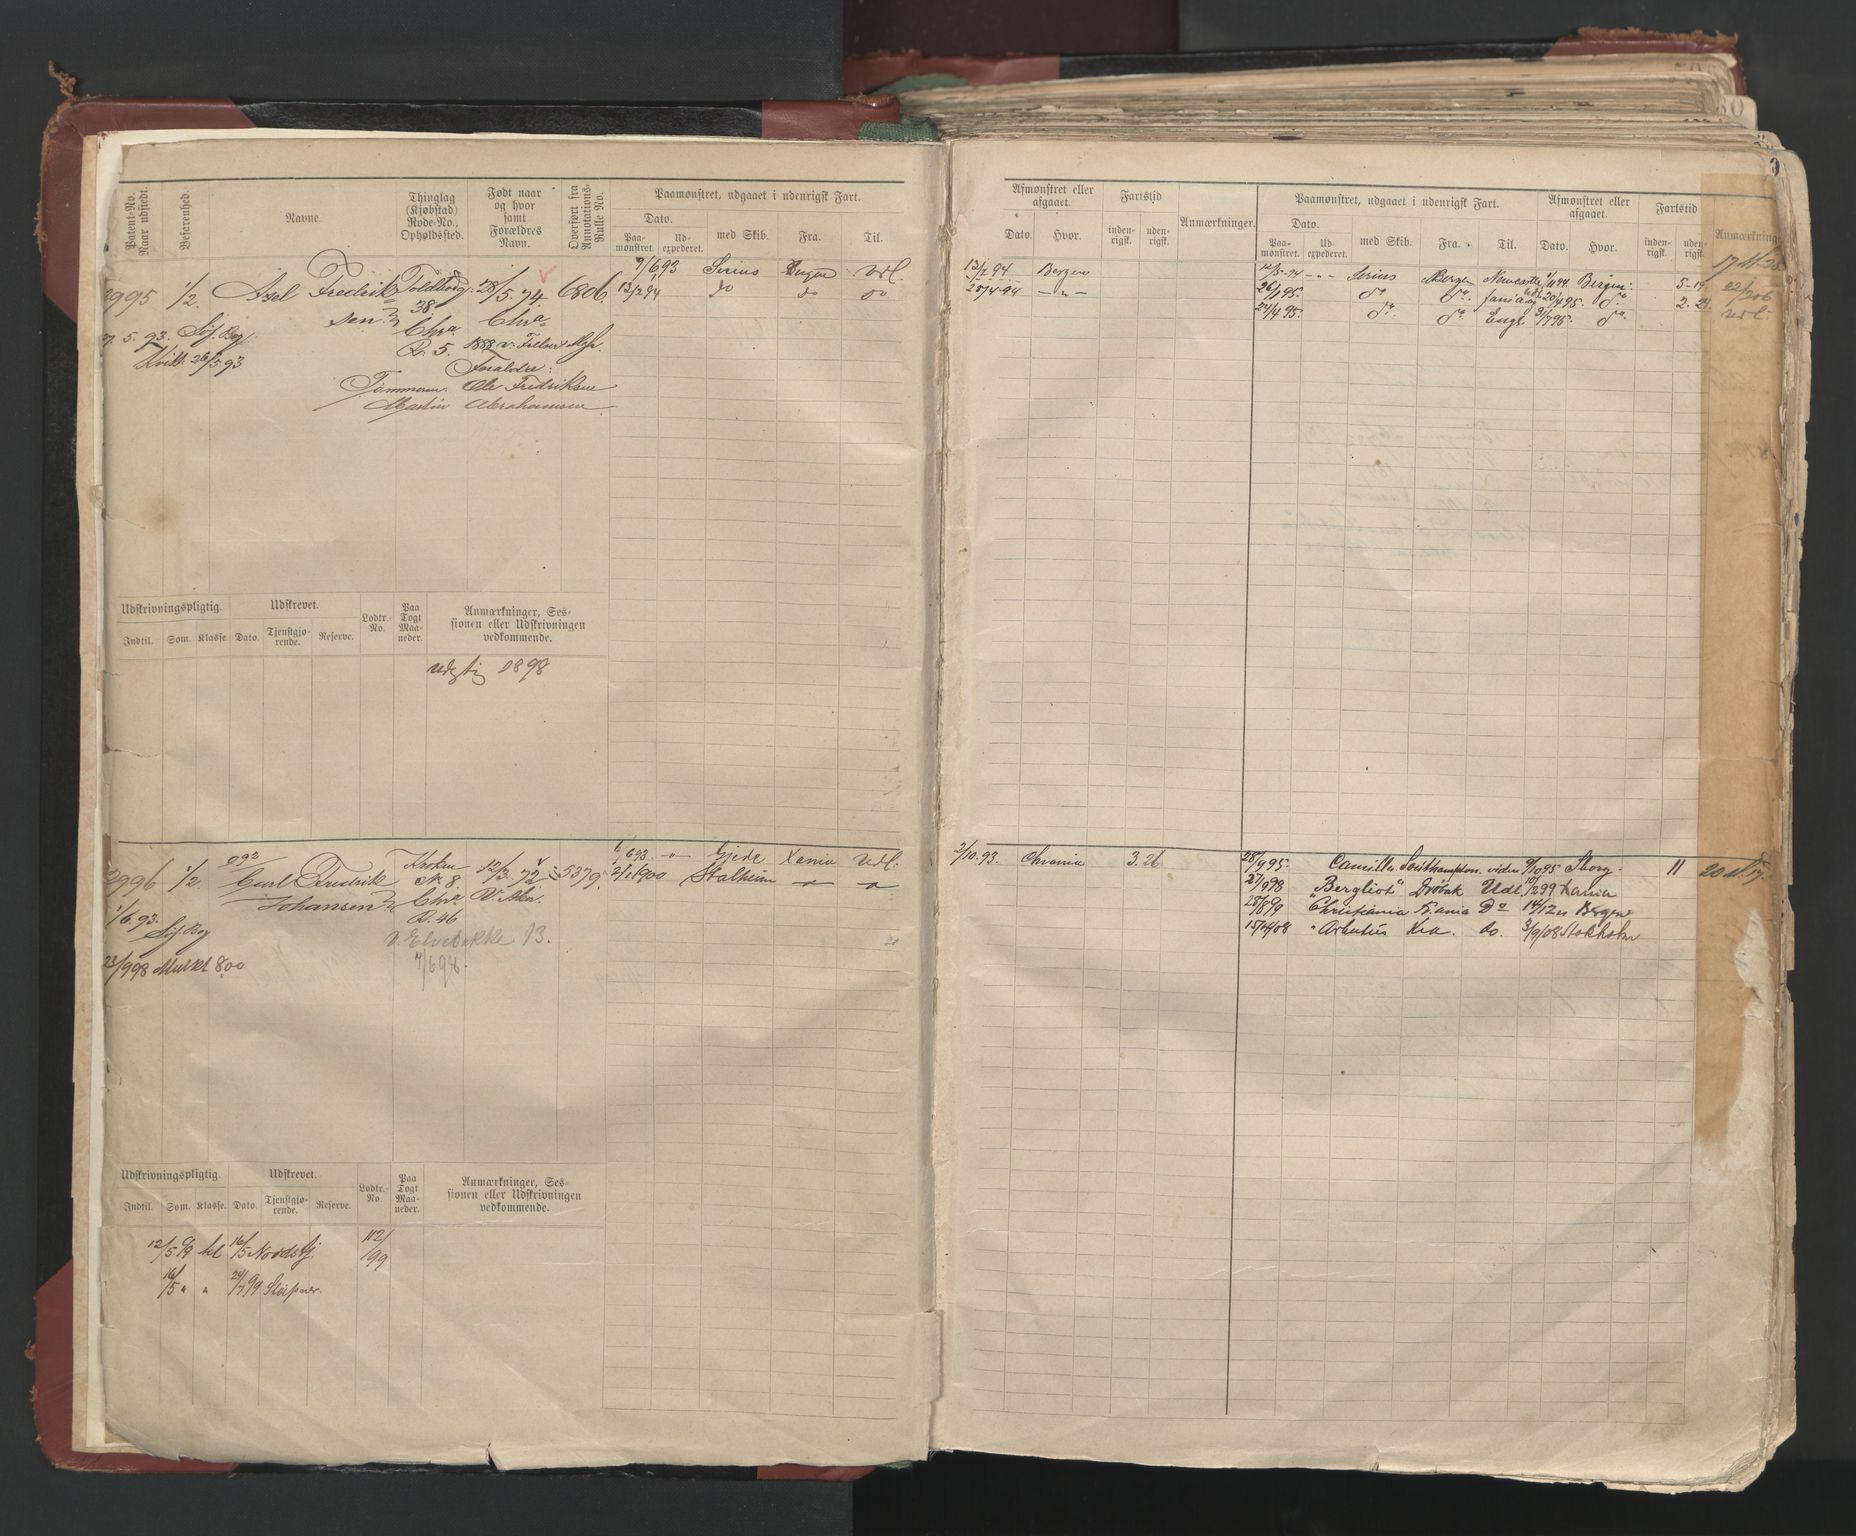 Patent-No. Naar udstedt.
Befarenhed.
Navne
Thinglag (Kjøbstad) Rode-No., Opholdssted.
Født naar og hvor samt Forældres Navn.
Overført fra Annotations-Rulle No.
Paamønstret, udgaaet i udenrigsk Fart.
Dato.
Paamønstret. Udexpederet. med Skib. Fra. Til.
9/6 93 Sirius Bergen Udl.
2995 1/2 Axel Fredriksen Toldbodg: 28/5 74. 6806 13/2 94 do do do
38
Chra Chra
27. 5. 93. Søf. Bog R. 5. 1888 v. Frelser Mgh.
Kvitt. 26/5 93 Forældre:
Tømmerm. Ole Fredriksen
Martin Abrahamsen
Udskrivningspligtig. Udskrevet. Lodtr.-No. Paa Togt Maaneder. Anmærkninger, Sessionen eller Udskrivningen vedkommende.
Indtil. Søm. Klasse. Dato. Tjenstgjørende. Reserve.
udgtig 1898
093 Kroken 6/6 93 " Gjede Xania Udl.
2996 1/2. Carl Fredrik No. 8 12/3 72 5379. 2/1 1900 Stalheim " "
Johansen Chra V. Aker.
1/6 93. R. 46
Søf. Bog v. Elvebakke 13.
23/9 98 Mulkt 8,00 7/6 98.
Udskrivningspligtig. Udskrevet. Lodtr.-No. Paa Togt Maaneder. Anmærkninger, Sessionen eller Udskrivningen vedkommende.
Indtil. Søm. Klasse. Dato. Tjenstgjørende. Reserve.
12/5 99 hl 16/5 Nordstj. 112/99
16/5 " " 24/7 99 Sleipner.
Afmønstret eller afgaaet. Fartstid Anmærkninger. Paamønstret, udgaaet i udenrigsk Fart. Afmønstret eller afgaaet. Fartstid Anmærkninger
Dato. Hvor. indenrigsk. udenrigsk. Dato. Paamønstret. Udexpederet. med Skib. Fra. Til. Dato. Hvor. indenrigsk. udenrigsk.
13/2 94 Bergen 12/5 94 - " - Sirius Bergen Newcastle 1/11 94 Bergen. 5-19.
28/4 94 - " - 26/1 95. do do 20/4 95. do 2. 24.
24/4 95. do do Engl. 3/7 95. do
2/10. 93. Chrania 3. 26 28/9 95. Camilla Southampton videre 9/10 95 11
27/9 98 "Bergliot" Drøbak Udl 10/2 99 Xania
28/8 99 Christiania Xania Do 14/12 " Bergen
15/4 08 "Arbutus Kra. do. 3/9/08 Stokholm